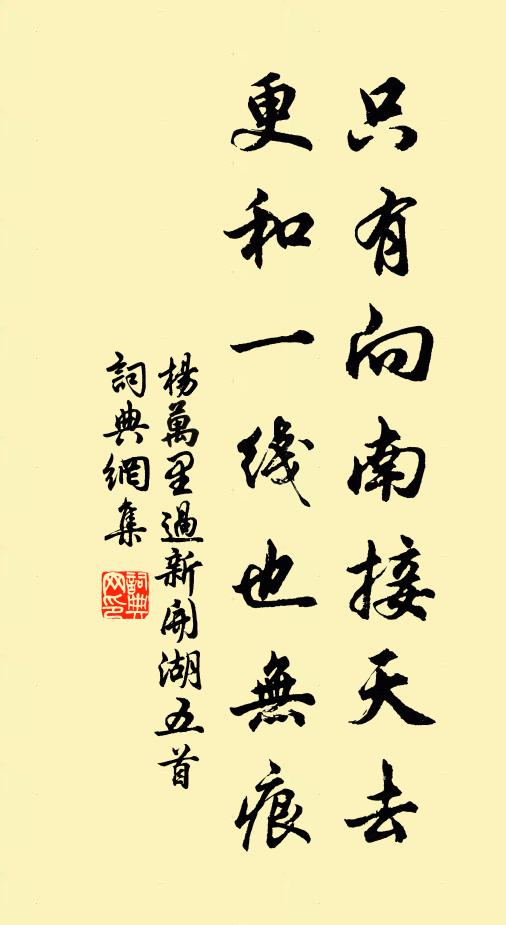 只有向南接天去
更和一线也無痕
楊萬里過新開湖五首
詞典網集
詞典网印